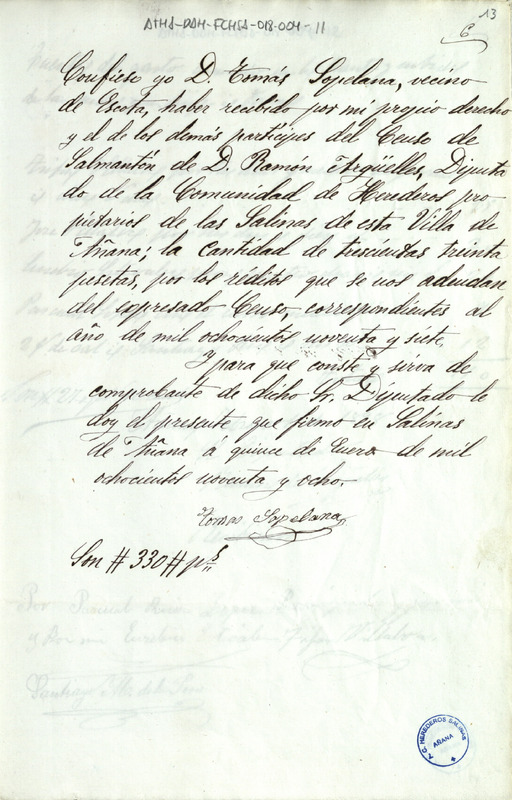 ATHA-DAH-FCHSA-018-004-11
13
6
Confieso yo D. Tomás Sopelana, vecino
de Escota, haber recibido por mi propio derecho
y el de los demás participes del Censo de
Salmantón de D. Ramón Argüelles, Diputa
do de la Comunidad de Herederos pro-
pietarios de las Salinas de esta Villa de
Añana; la cantidad de trescientas treinta
pesetas, por los réditos que se nos adeudan
del espresado Censo, correspondientes al
año de mil ochocientos noventa y siete,
y para que conste y sirva de
comprobante de dicho Sr. Diputado le
doy el presente que firmo en Salinas
de Añana á quince de Enero de mil
ochocientos noventa y ocho.
Tomas Sopelana
Son # 330 # pts
C. HEREDEROS SALINAS
AÑANA